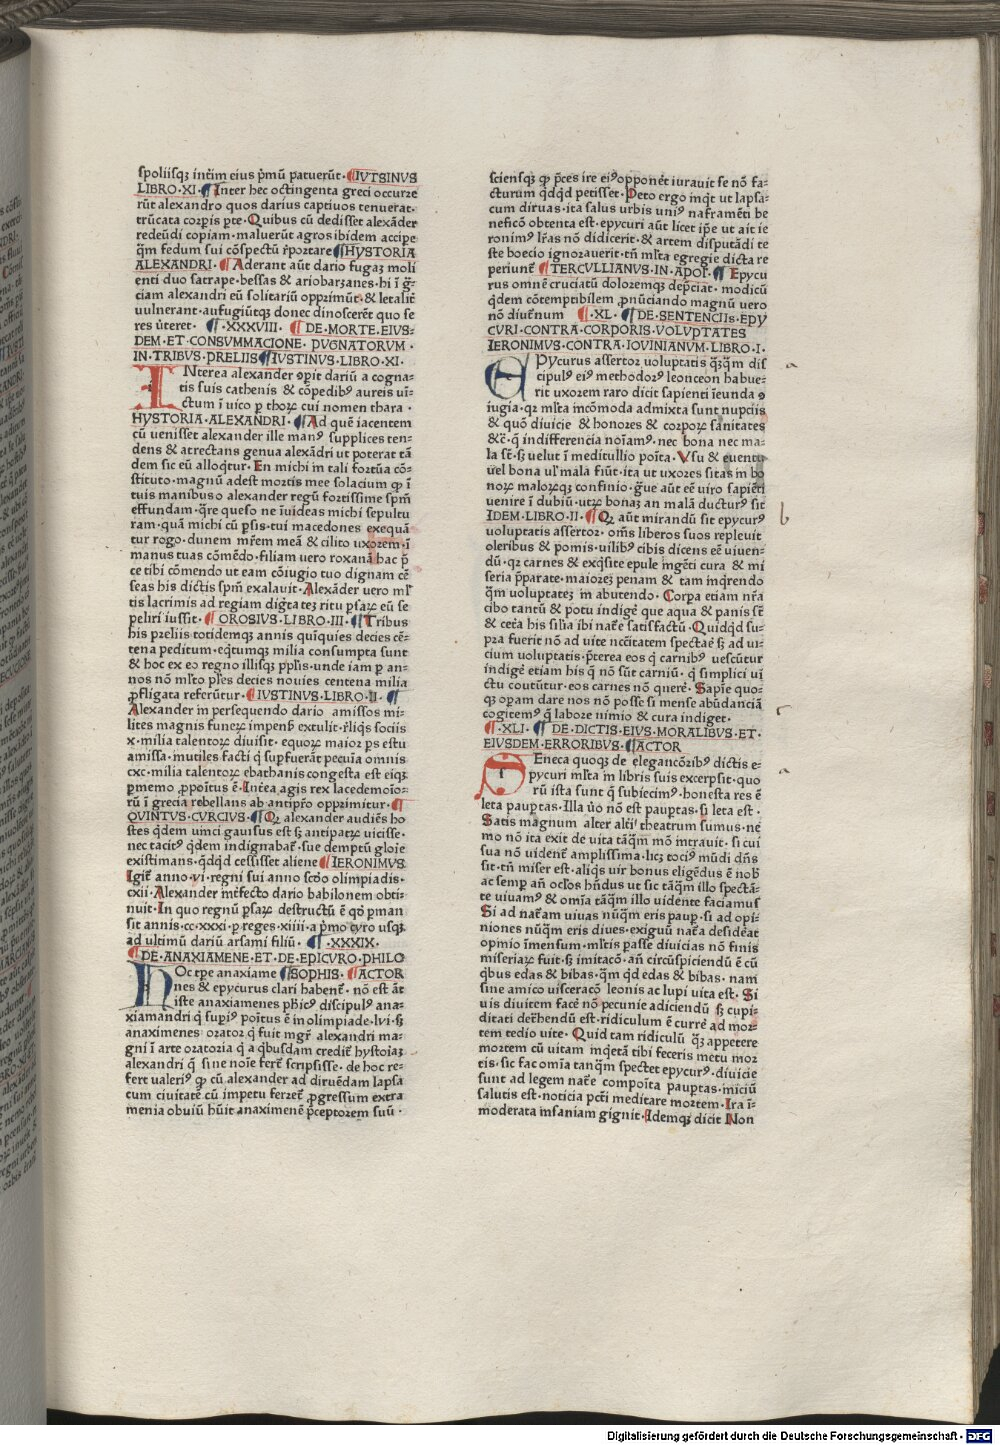 spoliisqꝫ int̄im eius p̄mū patuerūt· ¶IVTSINVS
LIBRO·XI·¶Inter hec octingenta greci occurre
rūt alexandro quos darius captiuos tenuerat·
trūcata corp̄is pte· Quibus cū dedisset alexāder
redeūdi copiam·maluerūt agros ibidem accipe
q̄m fedum sui cōspectū r̄portare¶HYSTORIA
ALEXANDRI· ¶Aderant aūt dario fugaꝫ moli
enti duo satrape·bessas & ariobarzanes·hi ī g̅r
ciam alexandri eū solitariū opprimūt·& letalit̄
vulnerant·aufugiūtqꝫ donec dinoscer̄et quo se
res ūteret· ¶·XXXVIII· ¶DE·MORTE·EIVS·
DEM·ET·CONSVMMACIONE·PVGNATORVM·
IN·TRIBVS·PRELIIS¶IVSTINVS·LIBRO·XI·
INterea alexander ꝯpit dariū a cogna-
tis suis cathenis & cōpedibꝰ aureis uī-
ctum ī uico p thoꝝ cui nomen thara·
HYSTORIA·ALEXANDRI·¶Ad quē iacentem
cū uenisset alexander ille manꝰ supplices ten-
dens & atrectans genua alexādri ut poterat tā
dem sic eū alloqtur· En michi in tali fortūa cō-
stituto·magnū adest mortis mee solacium ꝙ ī
tuis manibus o alexander regū fortissime spm̄
effundam·q̄re queso ne īuideas michi sepultu
ram·quā michi cū psis·tui macedones exequā
tur rogo·dunem mr̄em meā & cilito uxorem·ī
manus tuas cōmēdo·filiam uero roxanā hac p̄
ce tibi cōmendo ut eam cōiugio tuo dignam cē
seas his dictis spm̄ exalauit· Alexāder uero ml̄
tis lacrimis ad regiam digta teꝫ ritu psaꝝ eū se
peliri iussit· ¶OROSIVS·LIBRO·III·¶Tribus
his preliis totidemqꝫ annis quīquies decies cē-
tena peditum·eqtumqꝫ milia consumpta sunt
& hoc ex eo regno illisqꝫ pplis·unde iam p an-
nos nō ml̄to pl̄es decies nouies centena milia
ꝓfligata referūtur·¶IVSTINVS·LIBRO·II· ¶
Alexander in persequendo dario amissos mi-
lites magnis funeꝝ impenš extulit·r̄liqs sociis
x·milia talentoꝝ diuisit· equoꝝ maior ps estu
amissa·mutiles facti q supfuerāt·pecuīa omnis
cxc·milia talentoꝝ ebathanis congesta est eiqꝫ
pmemo ꝓpoitus ē·Int̄ea agis rex lacedemoīo-
rū ī grecia rebellans ab antipr̄o opprimitur·¶
QVINTVS·CVRCIVS·¶Qꝫ alexander audiēs ho
stes qdem uinci gauisus est sꝫ antipatꝝ uicisse·
nec tacitꝰ qdem indignabat̄·sue demptū gloīe
existimans·qdqd cessisset aliene¶IERONIMVS
Igit̄ anno·vi·regni sui anno scdo olimpiadis·
cxii·Alexander int̄fecto dario babilonem obti-
nuit·In quo regnū psaꝝ destructū ē qd pman
sit annis·cc·xxxi·p reges·xiiii·a p̄mo cyro usqꝫ
ad ultimū dariū arsami filiū· ¶·XXXIX·
¶DE·ANAXIAMENE·ET·DE·EPICVRO·PHILO
HOc tpe anaxiame ¶SOPHIS·¶ACTOR
nes & epycurus clari habent̄·nō est āt
iste anaxiamenes pbicꝰ discipulꝰ ana-
xiamandri q supiꝰ poitus ē in olimpiade·lvi·sꝫ
anaximenes orator q fuit mgr̄ alexandri ma-
gni ī arte oratoria q a qbusdam credit̄ hystoīaꝫ
alexandri q sine noīe fert̄ scripsisse·de hoc re-
fert ualeriꝰ ꝙ cū alexander ad diruēdam lapsa
cum ciuitatē cū impetu ferret̄ ꝓgressum extra
menia obuiū hūit anaximenē p̄ceptorem suū·
sciensqꝫ ꝙ p̄ces ire eiꝰ opponēt iurauit se nō fa-
cturum qdqd petisset· Peto ergo inqt ut lapsa-
cum diruas·ita salus urbis uniꝰ naframēti be
neficō obtenta est·epycuri aūt licet ip̄e ut ait ie
ronimꝰ lr̄as nō didicerit·& artem disputādi te
ste boecio ignorauerit·tn̄ ml̄ta egregie dicta re
periunt̄ ¶TERCVLLIANVS·IN·APOL̄·¶Epycu
rus omnē cruciatū doloremqꝫ dep̄ciat· modicū
qdem cōtemptibilem ꝓnūciando magnū uero
nō diuēnum ¶·XL·¶DE·SENTENCIIS·EPY
CVRI·CONTRA·CORPORIS·VOLVPTATES
IERONIMVS·CONTRA·IOVINIANVM·LIBRO·I·
EPycurus assertor uoluptatis qꝫqm dis
cipulꝰ eiꝰ methodorꝰ leonceon habue-
rit uxorem raro dicit sapienti ieunda ꝯ
iugia·qꝫ ml̄ta incōmoda admixta sunt nupciis
& quō diuicie & honores & corpoꝝ sanitates
&c̄·q indifferencia noīam̄·nec bona nec ma-
la sē·sꝫ uelut ī meditullio poīta· Vsu & euentu
uel bona ul̄ mala fiūt·ita ut uxores sitas in bo
noꝝ maloꝝqꝫ confinio·ḡue aūt eē uiro sapiēti
uenire ī dubiū·utꝝ bonaꝫ an malā ducturꝰ sit
IDEM·LIBRO·II·¶Qꝫ aūt mirandū sit epycurꝰ
uoluptatis assertor·om̄s liberos suos repleuit
oleribus & pomis·uilibꝰ cibis dicens eē uiuen-
dū·qꝫ carnes & exqsite epule ingēti cura & mi
seria p̄parate·maioreꝫ penam & tam inqrendo
q̄m uoluptateꝫ in abutendo· Corpa etiam nr̄a
cibo tantū & potu indiget que aqua & panis sē
& cetā his silia ibi nat̄e satisfactū· Quidqd su-
pra fuerit nō ad uite nccītatem spectat sꝫ ad ui-
cium voluptatis·p̄terea eos q carnibꝰ uescūtur
indigē etiam his q nō sūt carniū· q simplici ui
ctu coutūtur·eos carnes nō querē· Sapīe quo-
qꝫ opam dare nos nō posse si mense abūdanciā
cogitemꝰ q labore nimio & cura indiget·
¶·XLI· ¶DE·DICTIS·EIVS·MORALIBVS·ET·
EIVSDEM·ERRORIBVS·¶ACTOR
SEneca quoqꝫ de elegancōribꝰ dictis e-
pycuri ml̄ta in libris suis excerpsit·quo
rū ista sunt q subiecimꝰ·honesta res ē
leta pauptas· Illa uo nō est pauptas·si leta est·
Satis magnum alter alti theatrum sumus·ne
mo nō ita exit de uita tāqm mō intrauit· si cui
sua nō uident̄ amplissima·licꝫ tociꝰ mūdi dn̄s
sit·tn̄ miser est·aliqs uir bonus eligēdus ē nob
ac semp an̄ oc̄los hn̄dus ut sic tāqm illo spectā-
te uiuamꝰ & omīa tāqm illo uidente faciamus
Si ad nat̄am uiuas nūqm eris paup·si ad opi-
niones nūqm eris diues·exiguū nat̄a desideāt
opinio imensum·ml̄tis passe diuicias nō finis
miseriaꝝ fuit·sꝫ imitacō· an̄ circūspiciendū ē cū
qbus edas & bibas·qm qd edas & bibas· nam
sine amico uisceracō leonis ac lupi uita est· Si
uis diuitem facē nō pecunie adiciendū sꝫ cupi-
ditati det̄hendū est·ridiculum ē currē ad mor-
tem tedio uite· Quid tam ridiculū qꝫ appetere
mortem cū uitam inqetā tibi feceris metu mor
tis·sic fac omīa tanqm spectet epycurꝰ·diuicie
sunt ad legem nat̄e compoīta pauptas·iniciū
salutis est·noticia pcti meditare mortem· Ira ī-
moderata insaniam gignit· Idemqꝫ dicit Non
a
b
c
a
Digitalisierung gefördert durch die Deutsche Forschungsgemeinschaft · DFG